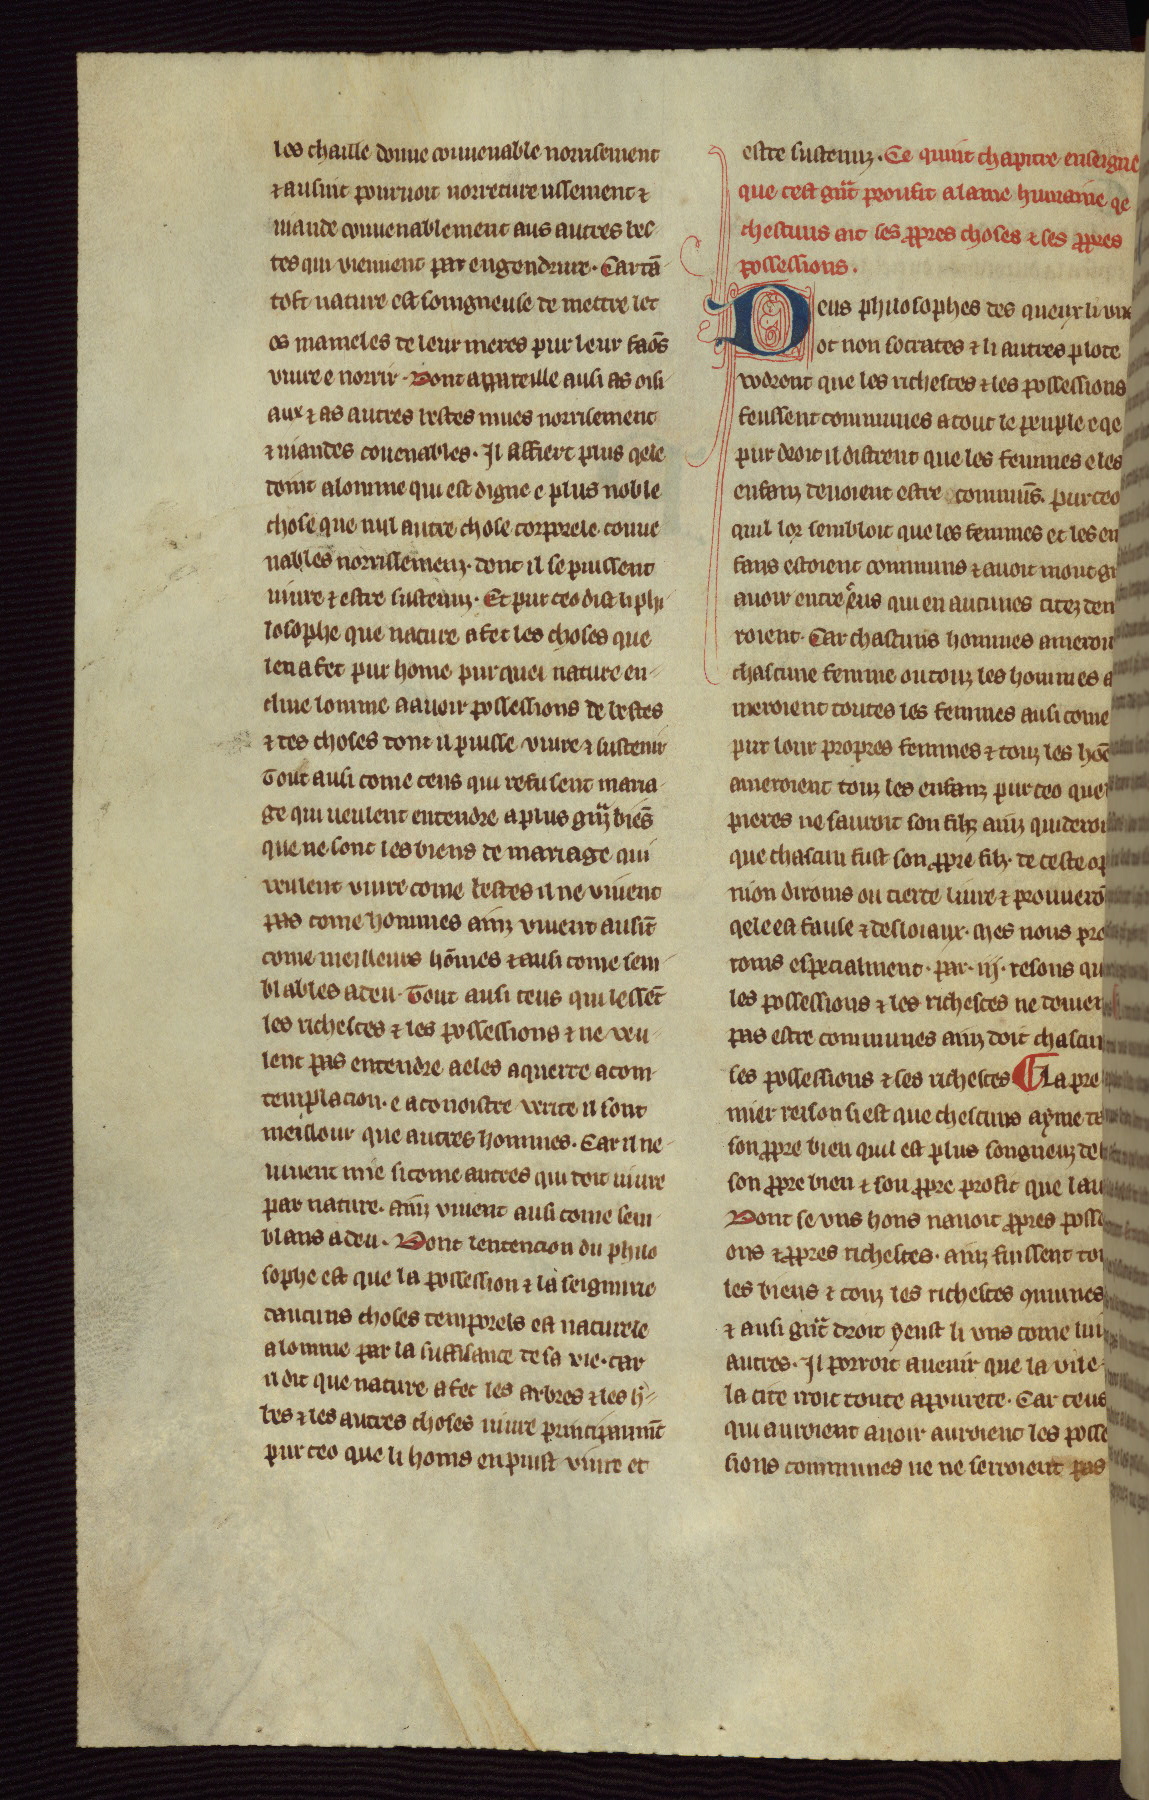 les chaille donne couuenable norrisement
⁊ ausint pouruoit norreture ussement ⁊
uiande couuenablement aus autres bes-
tes qui viennent par engendrure. Car tā
tost nature est soingneuse de mettre let
os mameles de leur meres pur leur faōs
viure e norrir. Dont appareille ausi as oisi
aux ⁊ as autres bestes mues norrisement
⁊ uiandes couenables. Il affiert plus qele
doint a lomme qui est digne e plus noble
chose que nul autre chose corporele couue
nables norrissemenz. dont il se puissent
uiure ⁊ estre sustenuz. Et pur ceo dist li phi
losophe que nature a fet les choses que
len a fet pur home pur quei nature en-
cline lomme a auoir possessions de bestes
⁊ des choses dont il puisse viure ⁊ sustenir
Tout ausi come ceus qui refusent maria-
ge qui ueulent entendre a plus grāz biēs
que ne sont les biens de mariage qui
veulent viure come bestes il ne viuent
pas come hommes ainz viuent ausint
come meilleurs hōmes ⁊ ausi come sem
blables a deu. Tout ausi ceus qui lessēt
les richesces ⁊ les possessions ⁊ ne veu-
lent pas entendre a eles aquerre a com
templacion. e a conoistre verite il sont
meillour que autres hommes. Car il ne
uiuent mie si come autres qui doit uiure
par nature. ainz viuent ausi come sem
blans a deu. Dont lentencion du philo
sophe est que la possession ⁊ la seignurie
daucuns choses temporels est naturele
a lomme par la suffisance de sa vie. car
il dit que nature a fet les arbres ⁊ les h'-
bes ⁊ les autres choses uiure principaumēt
pur ceo que li homs en puist viure et
estre sustenuz. Ce quint chapitre enseigne
que cest grāt proufit a la vie humaine qe
chescuns ait ses ꝓpres choses ⁊ ses ꝓpres
possessions.
Deus philosophes des queux li vns
ot non socrates ⁊ li autres plote
vodrent que les richesces ⁊ les possessions
feussent communes a tout le peuple e qe
pur droit il distrent que les femmes e les
enfanz deuoient estre communs. pur ceo
quil lor sembloit que les femmes et les en
fans estoient communs ⁊ auoit mout gr
auoir entre eus qui en aucunes citez den
roient. Car chascuns hommes ameroit
chascune femme ou touz les hommes a
meroient toutes les femmes ausi come
pur lour propres femmes ⁊ touz les hōe
ameroient touz les enfanz pur ceo que
pieres ne sauroit son filz ainz quideroi
que chascun fust son ꝓpre filz. de ceste op
nion dirrons ou tierce liure ⁊ prouuerō
qele est fause ⁊ desloiaux. Mes nous pro
uons especialment. par. iij. resons qu
les possessions ⁊ les richesces ne doiuen
pas estre communes ainz doit chascun
ses possessions ⁊ ses richesces ¶ La pre
mier reison si est que chescuns ayme de
son ꝓpre bien quil est plus songneuz de
son ꝓpre bien ⁊ son ꝓpre profit que lau
Dont se vns hons nauoit ꝓpres poss
ons ⁊ ꝓpres richesces. ainz fussent tou
les biens ⁊ touz les richesces cōmunes
⁊ ausi grāt droit y eust li vns come lui
autres. Il porroit auenir que la vile-
la cite iroit toute a pourete. Car ceus
qui auroient auoir auroient les posse
sions communes ne ne serroient pas